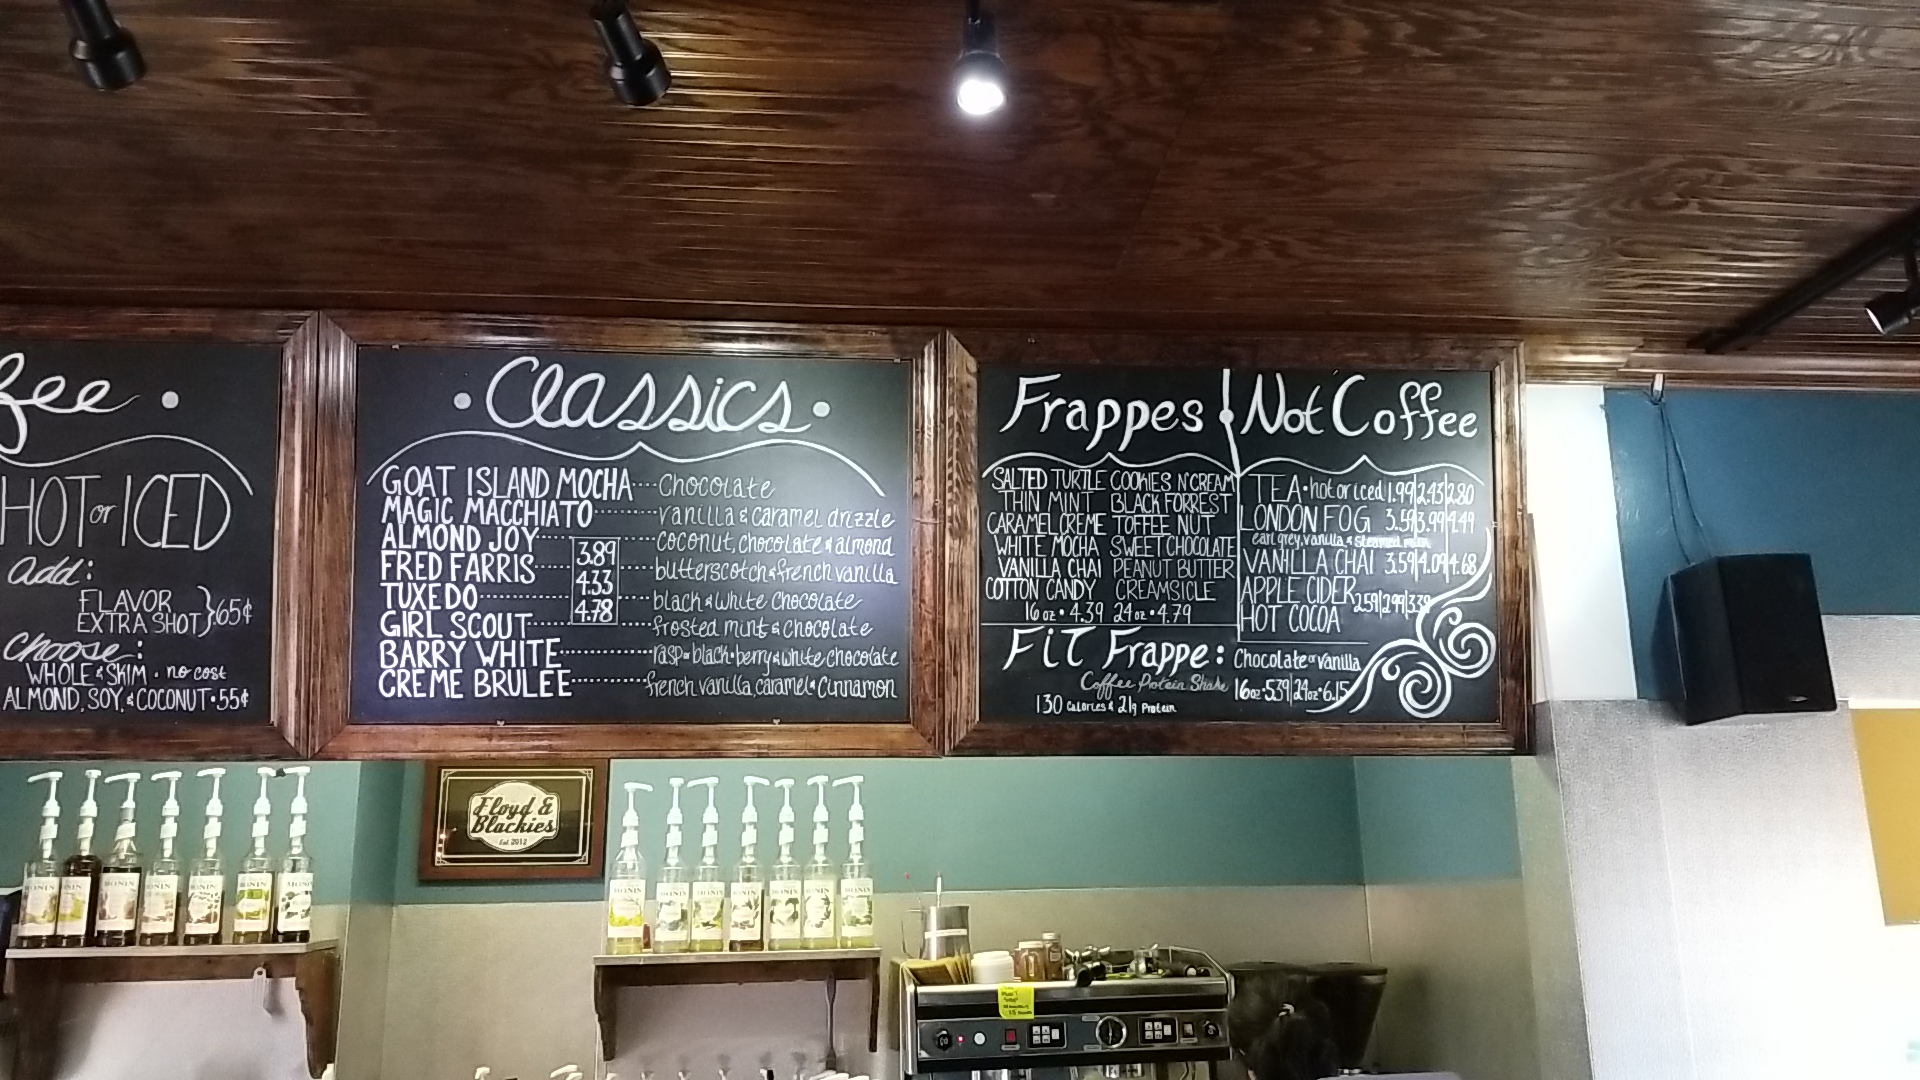 fee •
HOT or ICED
Add:
FLAVOR
EXTRA SHOT } .65¢
Choose:
WHOLE & SKIM • no cost
ALMOND, SOY, & COCONUT • 55¢
• Classics •
GOAT ISLAND MOCHA Chocolate
MAGIC MACCHIATO vanilla & caramel drizzle
ALMOND JOY coconut, chocolate & almond
FRED FARRIS butterscotch & french vanilla
TUXEDO black & white chocolate
GIRL SCOUT frosted mint & chocolate
BARRY WHITE rasp or black•berry & white chocolate
CREME BRULEE french vanilla, caramel & cinnamon
3.89
4.33
4.78
Frappes
SALTED TURTLE COOKIES N' CREAM
THIN MINT BLACK FORREST
CARAMEL CREME TOFFEE NUT
WHITE MOCHA SWEET CHOCOLATE
VANILLA CHAI PEANUT BUTTER
COTTON CANDY CREAMSICLE
16oz • 4.39 24oz • 4.79
Not Coffee
TEA • hot or iced 1.99|2.43|2.80
LONDON FOG 3.59|3.99|4.49
earl grey, vanilla, & steamed milk
VANILLA CHAI 3.59|4.09|4.68
APPLE CIDER
HOT COCOA 2.59|2.99|3.39
FiT Frappe: Chocolate or vanilla
Coffee Protein Shake 16oz • 5.39|24oz • 6.15
130 Calories & 21g Protein
Floyd &
Blackies
Est 2012
MONIN MONIN MONIN MONIN MONIN MONIN MONIN
MONIN MONIN MONIN MONIN MONIN MONIN MONIN